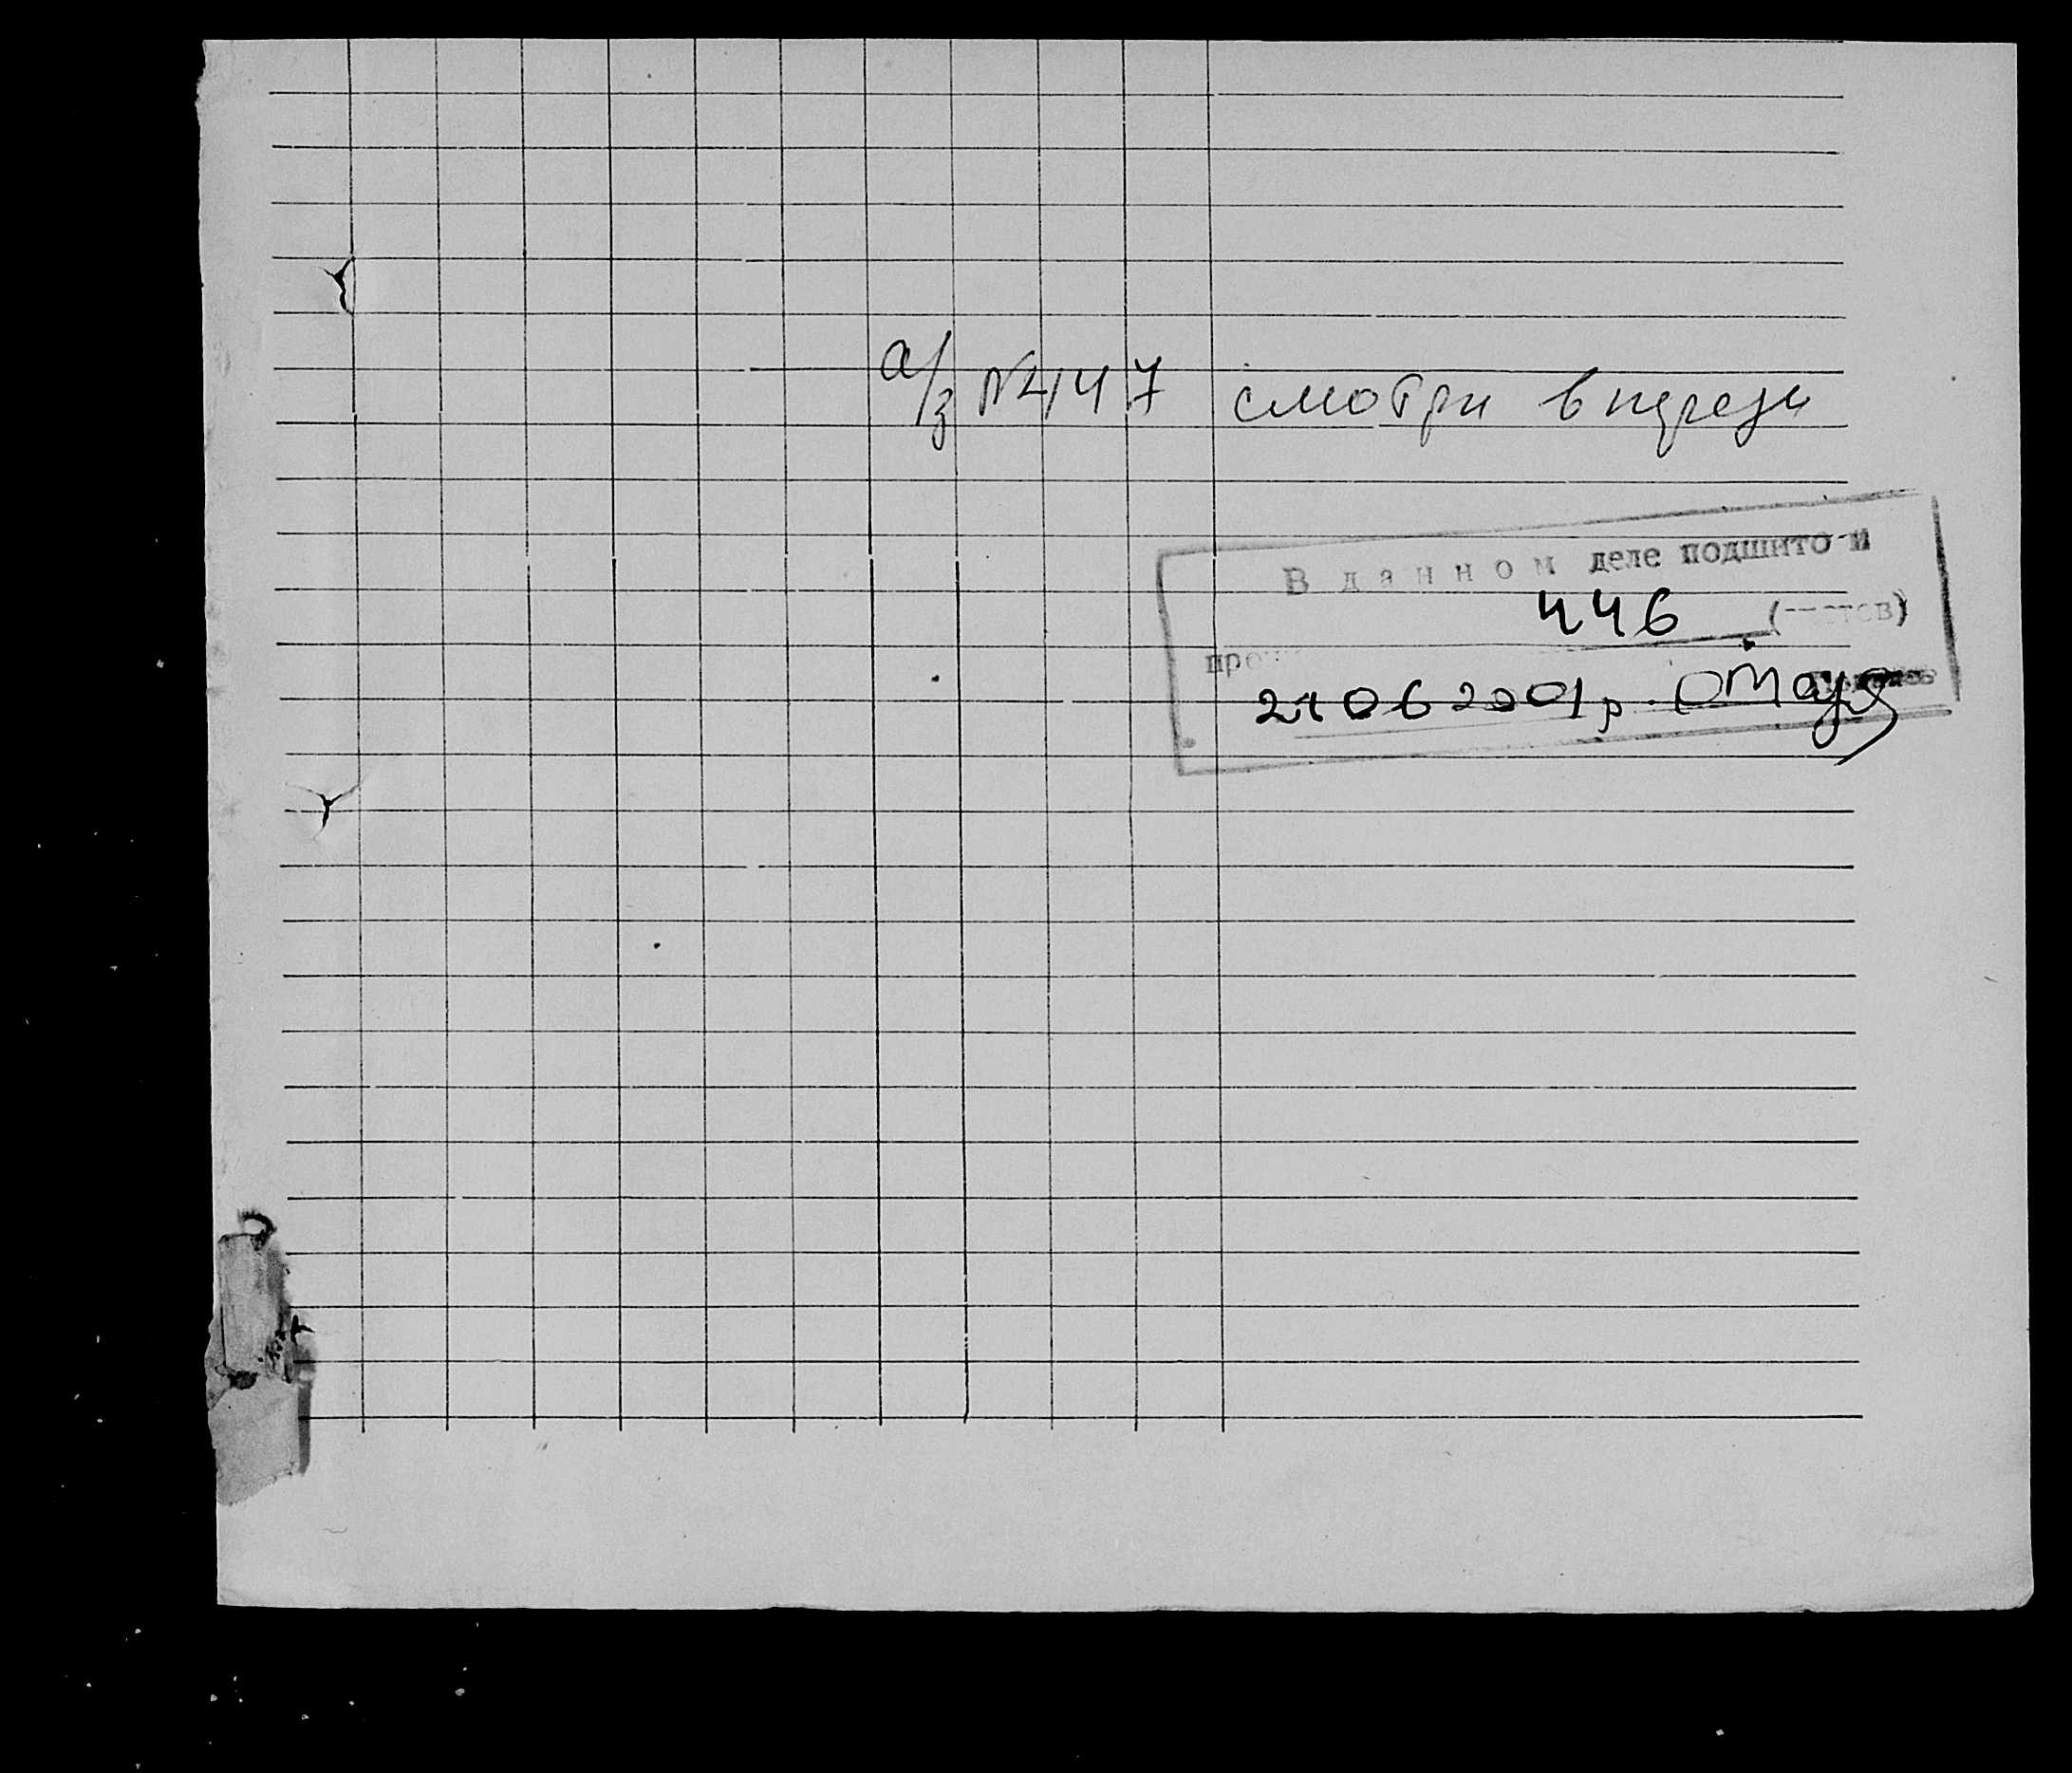 а/з №447 смотри впереди
В данном деле подшито и
446 (
про
21 06 2001 р.